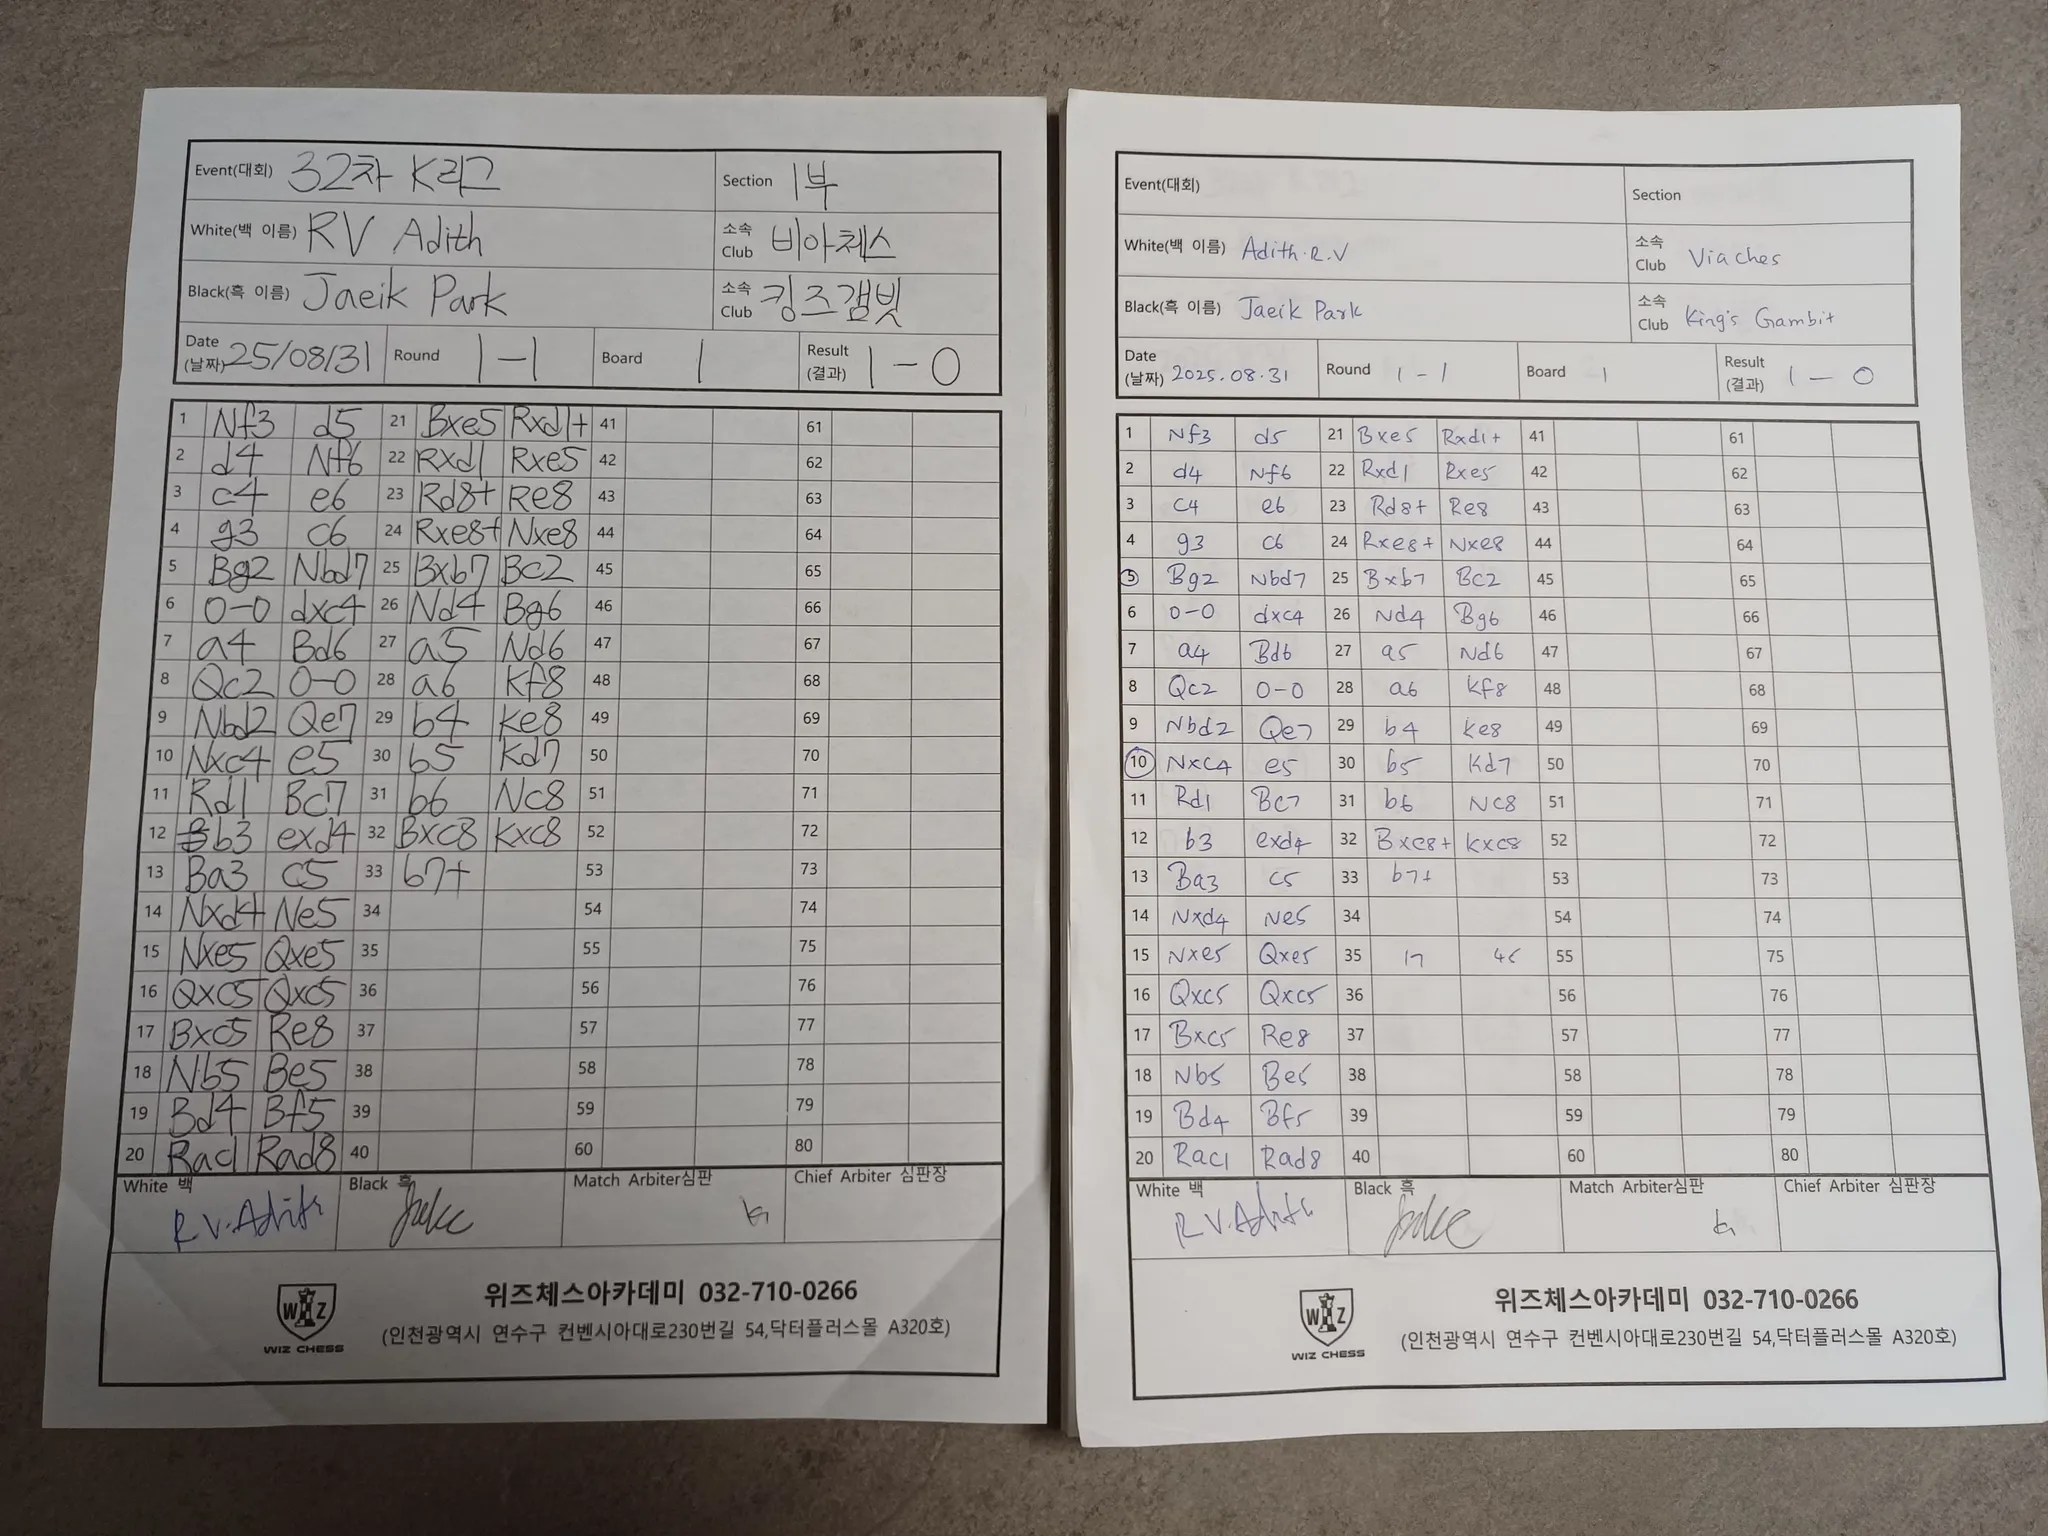 Event(대회) 32차 K리그 Section 1부
White(백 이름) RV Adith 소속 Club 비아체스
Black(흑 이름) Jaeik Park 소속 Club 킹즈갬빗
Date (날짜) 25/08/31 Round 1-1 Board 1 Result (결과) 1-0
1 Nf3 d5 21 Bxe5 Rxd1+ 41 61
2 d4 Nf6 22 Rxd1 Rxe5 42 62
3 c4 e6 23 Rd8+ Re8 43 63
4 g3 c6 24 Rxe8+ Nxe8 44 64
5 Bg2 Nbd7 25 Bxb7 Bc2 45 65
6 0-0 dxc4 26 Nd4 Bg6 46 66
7 a4 Bd6 27 a5 Nd6 47 67
8 Qc2 0-0 28 a6 Kf8 48 68
9 Nbd2 Qe7 29 b4 Ke8 49 69
10 Nxc4 e5 30 b5 Kd7 50 70
11 Rd1 Bc7 31 b6 Nc8 51 71
12 b3 exd4 32 Bxc8 Kxc8 52 72
13 Ba3 c5 33 b7+ 53 73
14 Nxd4 Ne5 34 54 74
15 Nxe5 Qxe5 35 55 75
16 Qxc5 Qxc5 36 56 76
17 Bxc5 Re8 37 57 77
18 Nb5 Be5 38 58 78
19 Bd4 Bf5 39 59 79
20 Rac1 Rad8 40 60 80
White 백 Black 흑 Match Arbiter심판 Chief Arbiter 심판장
R.V.Adith
WIZ CHESS
위즈체스아카데미 032-710-0266
(인천광역시 연수구 컨벤시아대로230번길 54,닥터플러스몰 A320호)
Event(대회) Section
White(백 이름) Adith.R.V 소속 Club Viaches
Black(흑 이름) Jaeik Park 소속 Club King's Gambit
Date (날짜) 2025.08.31 Round 1-1 Board 1 Result (결과) 1-0
1 Nf3 d5 21 Bxe5 Rxd1+ 41 61
2 d4 Nf6 22 Rxd1 Rxe5 42 62
3 c4 e6 23 Rd8+ Re8 43 63
4 g3 c6 24 Rxe8+ Nxe8 44 64
5 Bg2 Nbd7 25 Bxb7 Bc2 45 65
6 0-0 dxc4 26 Nd4 Bg6 46 66
7 a4 Bd6 27 a5 Nd6 47 67
8 Qc2 0-0 28 a6 Kf8 48 68
9 Nbd2 Qe7 29 b4 Ke8 49 69
10 Nxc4 e5 30 b5 Kd7 50 70
11 Rd1 Bc7 31 b6 Nc8 51 71
12 b3 exd4 32 Bxc8+ Kxc8 52 72
13 Ba3 c5 33 b7+ 53 73
14 Nxd4 Ne5 34 54 74
15 Nxe5 Qxe5 35 17 46 55 75
16 Qxc5 Qxc5 36 56 76
17 Bxc5 Re8 37 57 77
18 Nb5 Be5 38 58 78
19 Bd4 Bf5 39 59 79
20 Rac1 Rad8 40 60 80
White 백 Black 흑 Match Arbiter심판 Chief Arbiter 심판장
R.V.Adith
WIZ CHESS
위즈체스아카데미 032-710-0266
(인천광역시 연수구 컨벤시아대로230번길 54,닥터플러스몰 A320호)